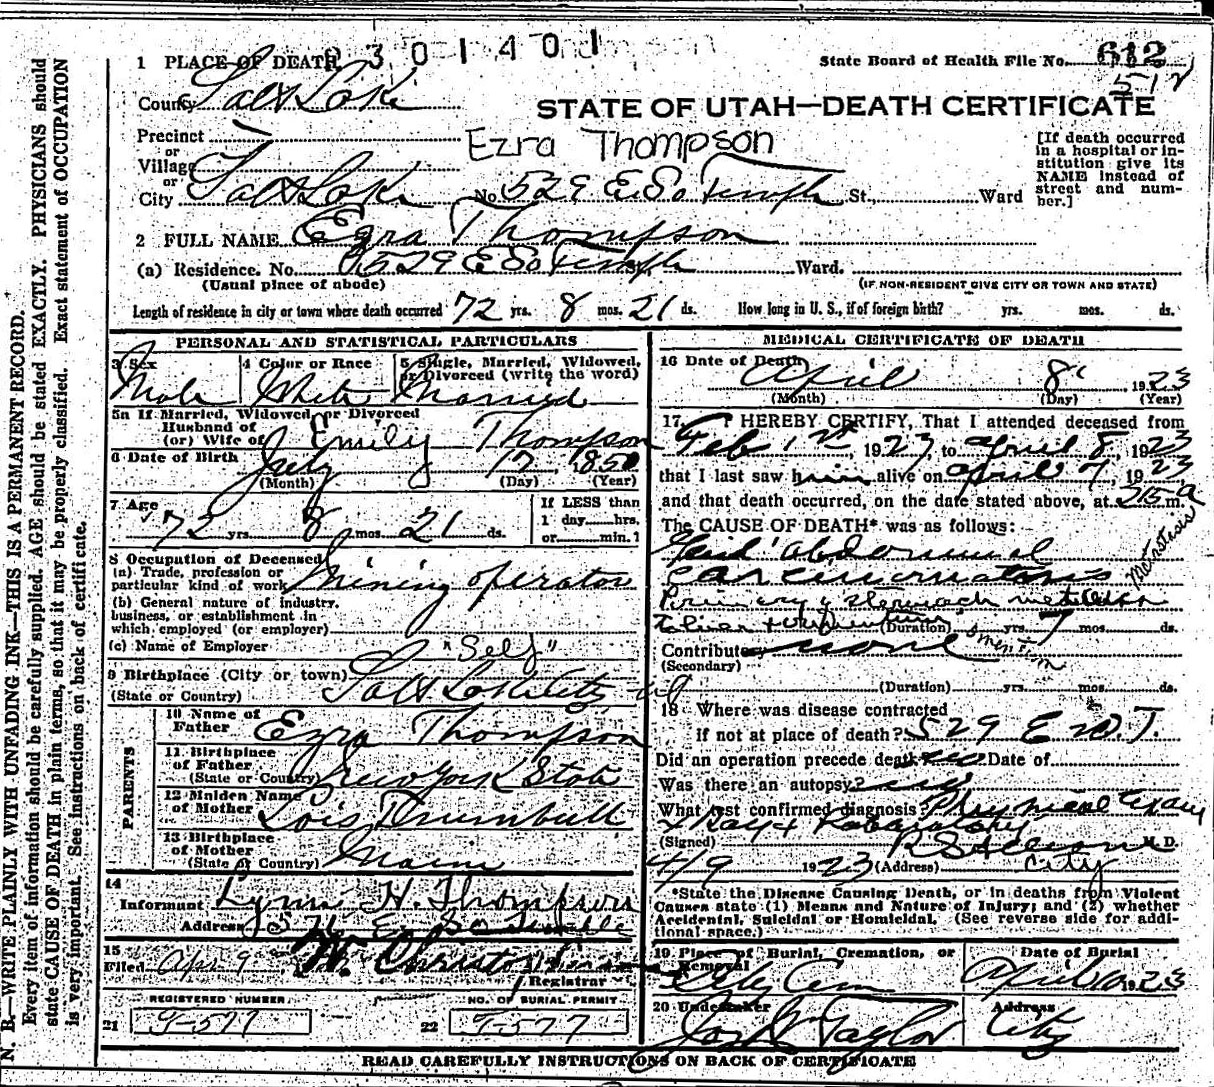 2301401
1 PLACE OF DEATH
State Board of Health File No. 612
512
County Salt Lake
STATE OF UTAH—DEATH CERTIFICATE
Precinct
Ezra Thompson
or
Village
or
City Salt Lake No. 529 E So Temple St., Ward
[If death occurred
in a hospital or in-
stitution give its
NAME instead of
street and num-
ber.]
2 FULL NAME Ezra Thompson
(a) Residence. No. 529 E So Temple Ward.
(Usual place of abode)
(IF NON-RESIDENT GIVE CITY OR TOWN AND STATE)
Length of residence in city or town where death occurred 72 yrs. 8 mos. 21 ds. How long in U. S., if of foreign birth? yrs. mos. ds.
PERSONAL AND STATISTICAL PARTICULARS
3 Sex
Male
4 Color or Race
White
5 Single, Married, Widowed,
or Divorced (write the word)
Married
5a If Married, Widowed, or Divorced
Husband of
(or) Wife of Emily Thompson
6 Date of Birth
July 17, 1850
(Month) (Day) (Year)
7 Age
72 yrs. 8 mos. 21 ds.
If LESS than
1 day......hrs.
or......min.?
8 Occupation of Deceased
(a) Trade, profession or
particular kind of work Mining operator
(b) General nature of industry,
business, or establishment in
which employed (or employer)
(c) Name of Employer "Self"
9 Birthplace (City or town)
(State or Country) Salt Lake City
PARENTS
10 Name of
Father Ezra Thompson
11 Birthplace
of Father
(State or Country) New York State
12 Maiden Name
of Mother Lois Trumbull
13 Birthplace
of Mother
(State or Country) Maine
14
Informant Lynn H. Thompson
Address E So Temple
15
Filed Apr 9
Registrar
REGISTERED NUMBER
21 T-577
NO. OF BURIAL PERMIT
22 T-577
MEDICAL CERTIFICATE OF DEATH
16 Date of Death
April 8 1923
(Month) (Day) (Year)
17 I HEREBY CERTIFY, That I attended deceased from
Feb 1st, 1923, to April 8, 1923
that I last saw him alive on April 7, 1923
and that death occurred, on the date stated above, at 215 a m.
The CAUSE OF DEATH* was as follows:
Abdominal
Carcinomatosis
Metastasis
Primary of stomach
(Duration) yrs. 7 mos. ds.
omentum
Contributory none
(Secondary)
(Duration) yrs. mos. ds.
18 Where was disease contracted
if not at place of death? 529 E So. T.
Did an operation precede death? no Date of
Was there an autopsy? no
What test confirmed diagnosis? Physical Exam
X Ray + Laboratory
(Signed) M. D.
4/9 1923 (Address) City
*State the Disease Causing Death, or in deaths from Violent
Causes state (1) Means and Nature of Injury; and (2) whether
Accidental, Suicidal or Homicidal. (See reverse side for addi-
tional space.)
19 Place of Burial, Cremation, or
Removal
City Cem
Date of Burial
April 10 1923
20 Undertaker
Jos Wm Taylor
Address
City
READ CAREFULLY INSTRUCTIONS ON BACK OF CERTIFICATE
N. B.—WRITE PLAINLY WITH UNFADING INK—THIS IS A PERMANENT RECORD.
Every item of information should be carefully supplied. AGE should be stated EXACTLY. PHYSICIANS should
state CAUSE OF DEATH in plain terms, so that it may be properly classified. Exact statement of OCCUPATION
is very important. See instructions on back of certificate.